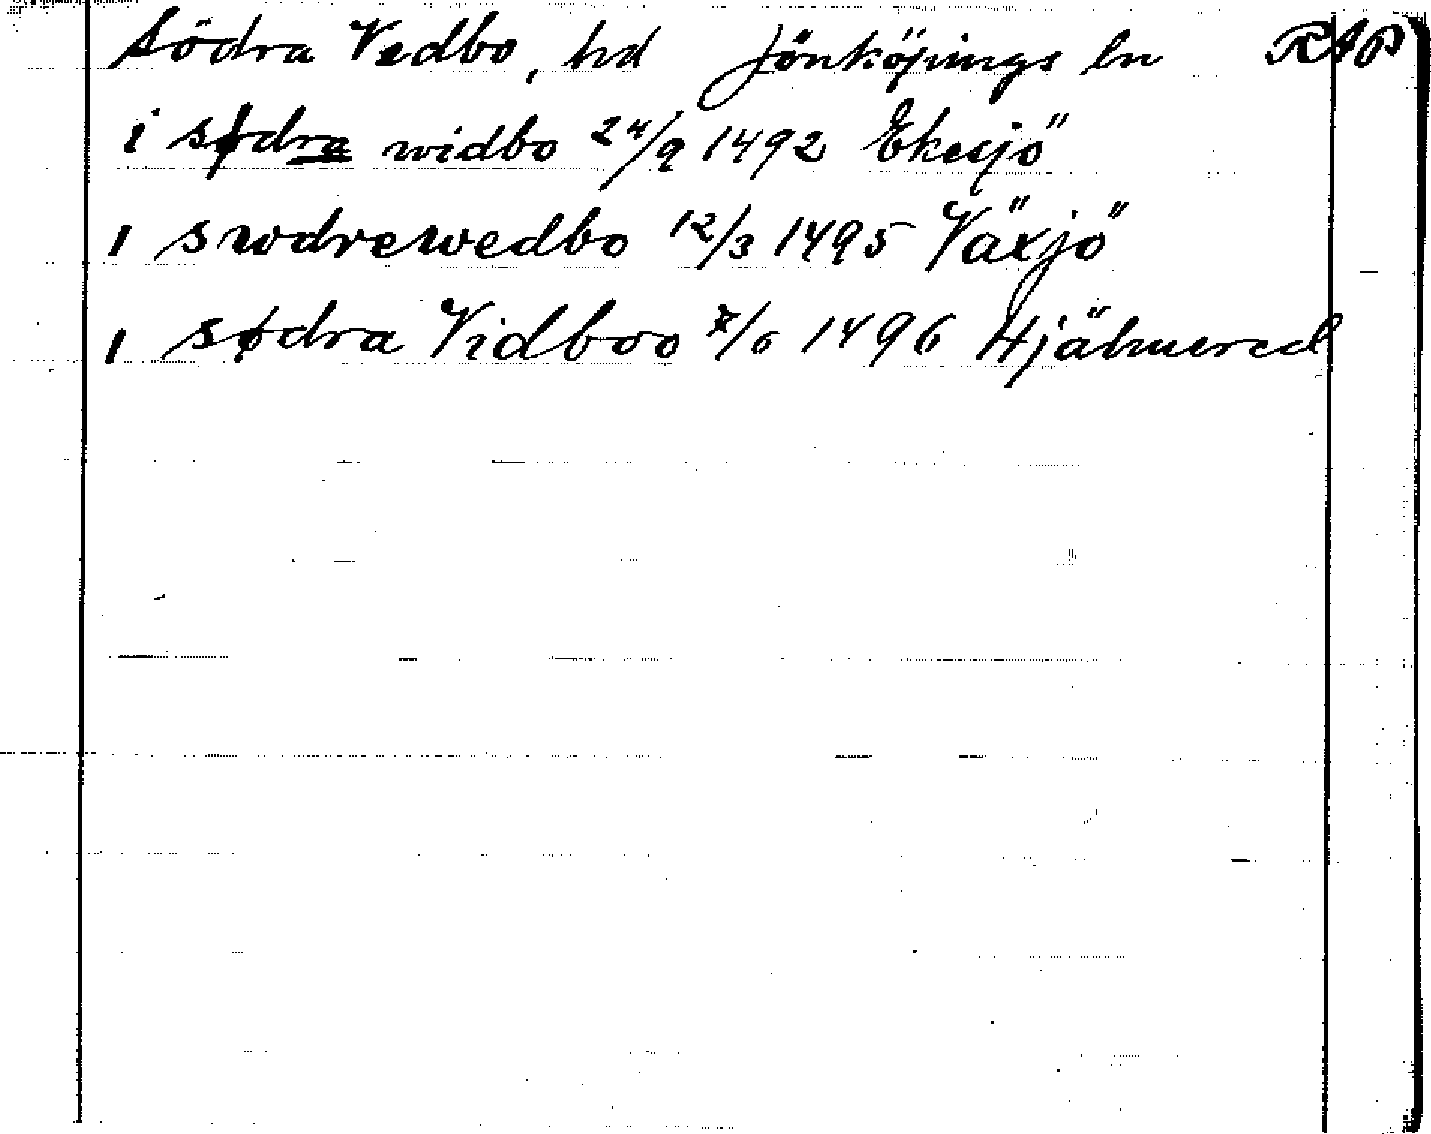 Södra Vedbo, hd Jönköpings ln RAP
i sødra widbo 24/9 1492 Eksjö
i swdrewedbo 12/3 1495 Växjö
i sødra Vidboo /6 1496 Hjälmered